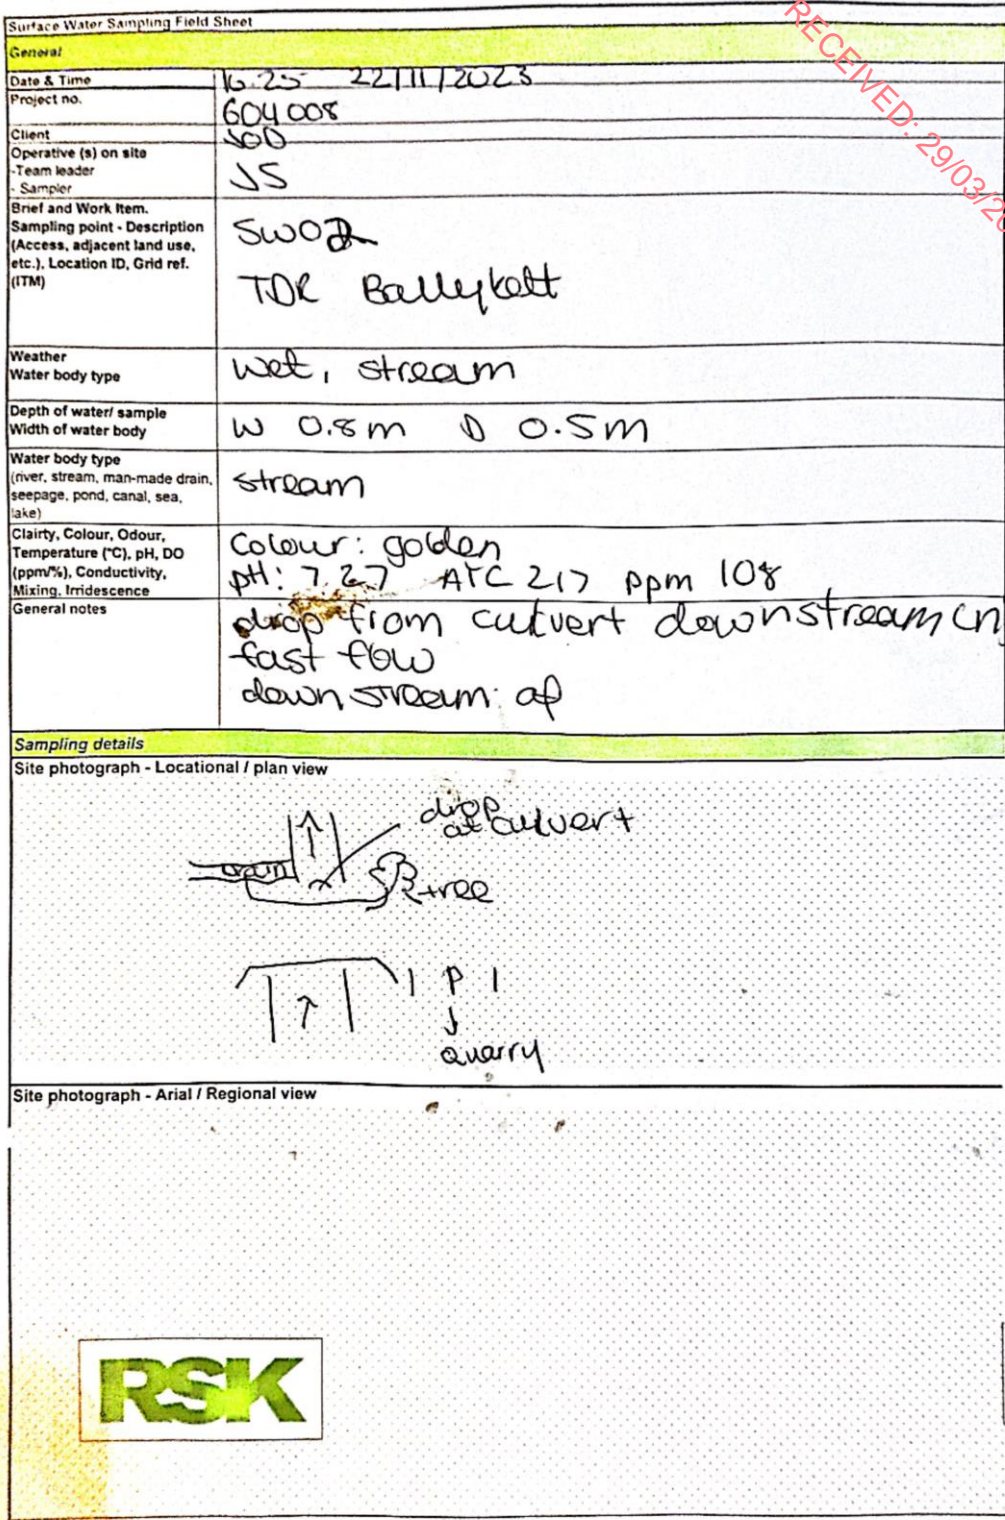 RECEIVED: 29/03/20
Surface Water Sampling Field Sheet
General
Date & Time 16.25 22/11/2023
Project no. 604008
Client JOD
Operative (s) on site
-Team leader
- Sampler
JS
Brief and Work Item.
Sampling point - Description
(Access, adjacent land use,
etc.), Location ID, Grid ref.
(ITM)
SW02
TDR Ballykett
Weather
Water body type
wet, stream
Depth of water/ sample
Width of water body
W 0.8m D 0.5m
Water body type
(river, stream, man-made drain,
seepage, pond, canal, sea,
lake)
stream
Clairty, Colour, Odour,
Temperature (°C), pH, DO
(ppm/%), Conductivity,
Mixing, Irridescence
Colour: golden
pH: 7.27 ATC 217 ppm 108
General notes
drop from culvert downstream
fast flow
downstream:
Sampling details
Site photograph - Locational / plan view
drop
at culvert
drain
tree
P
quarry
Site photograph - Arial / Regional view
RSK